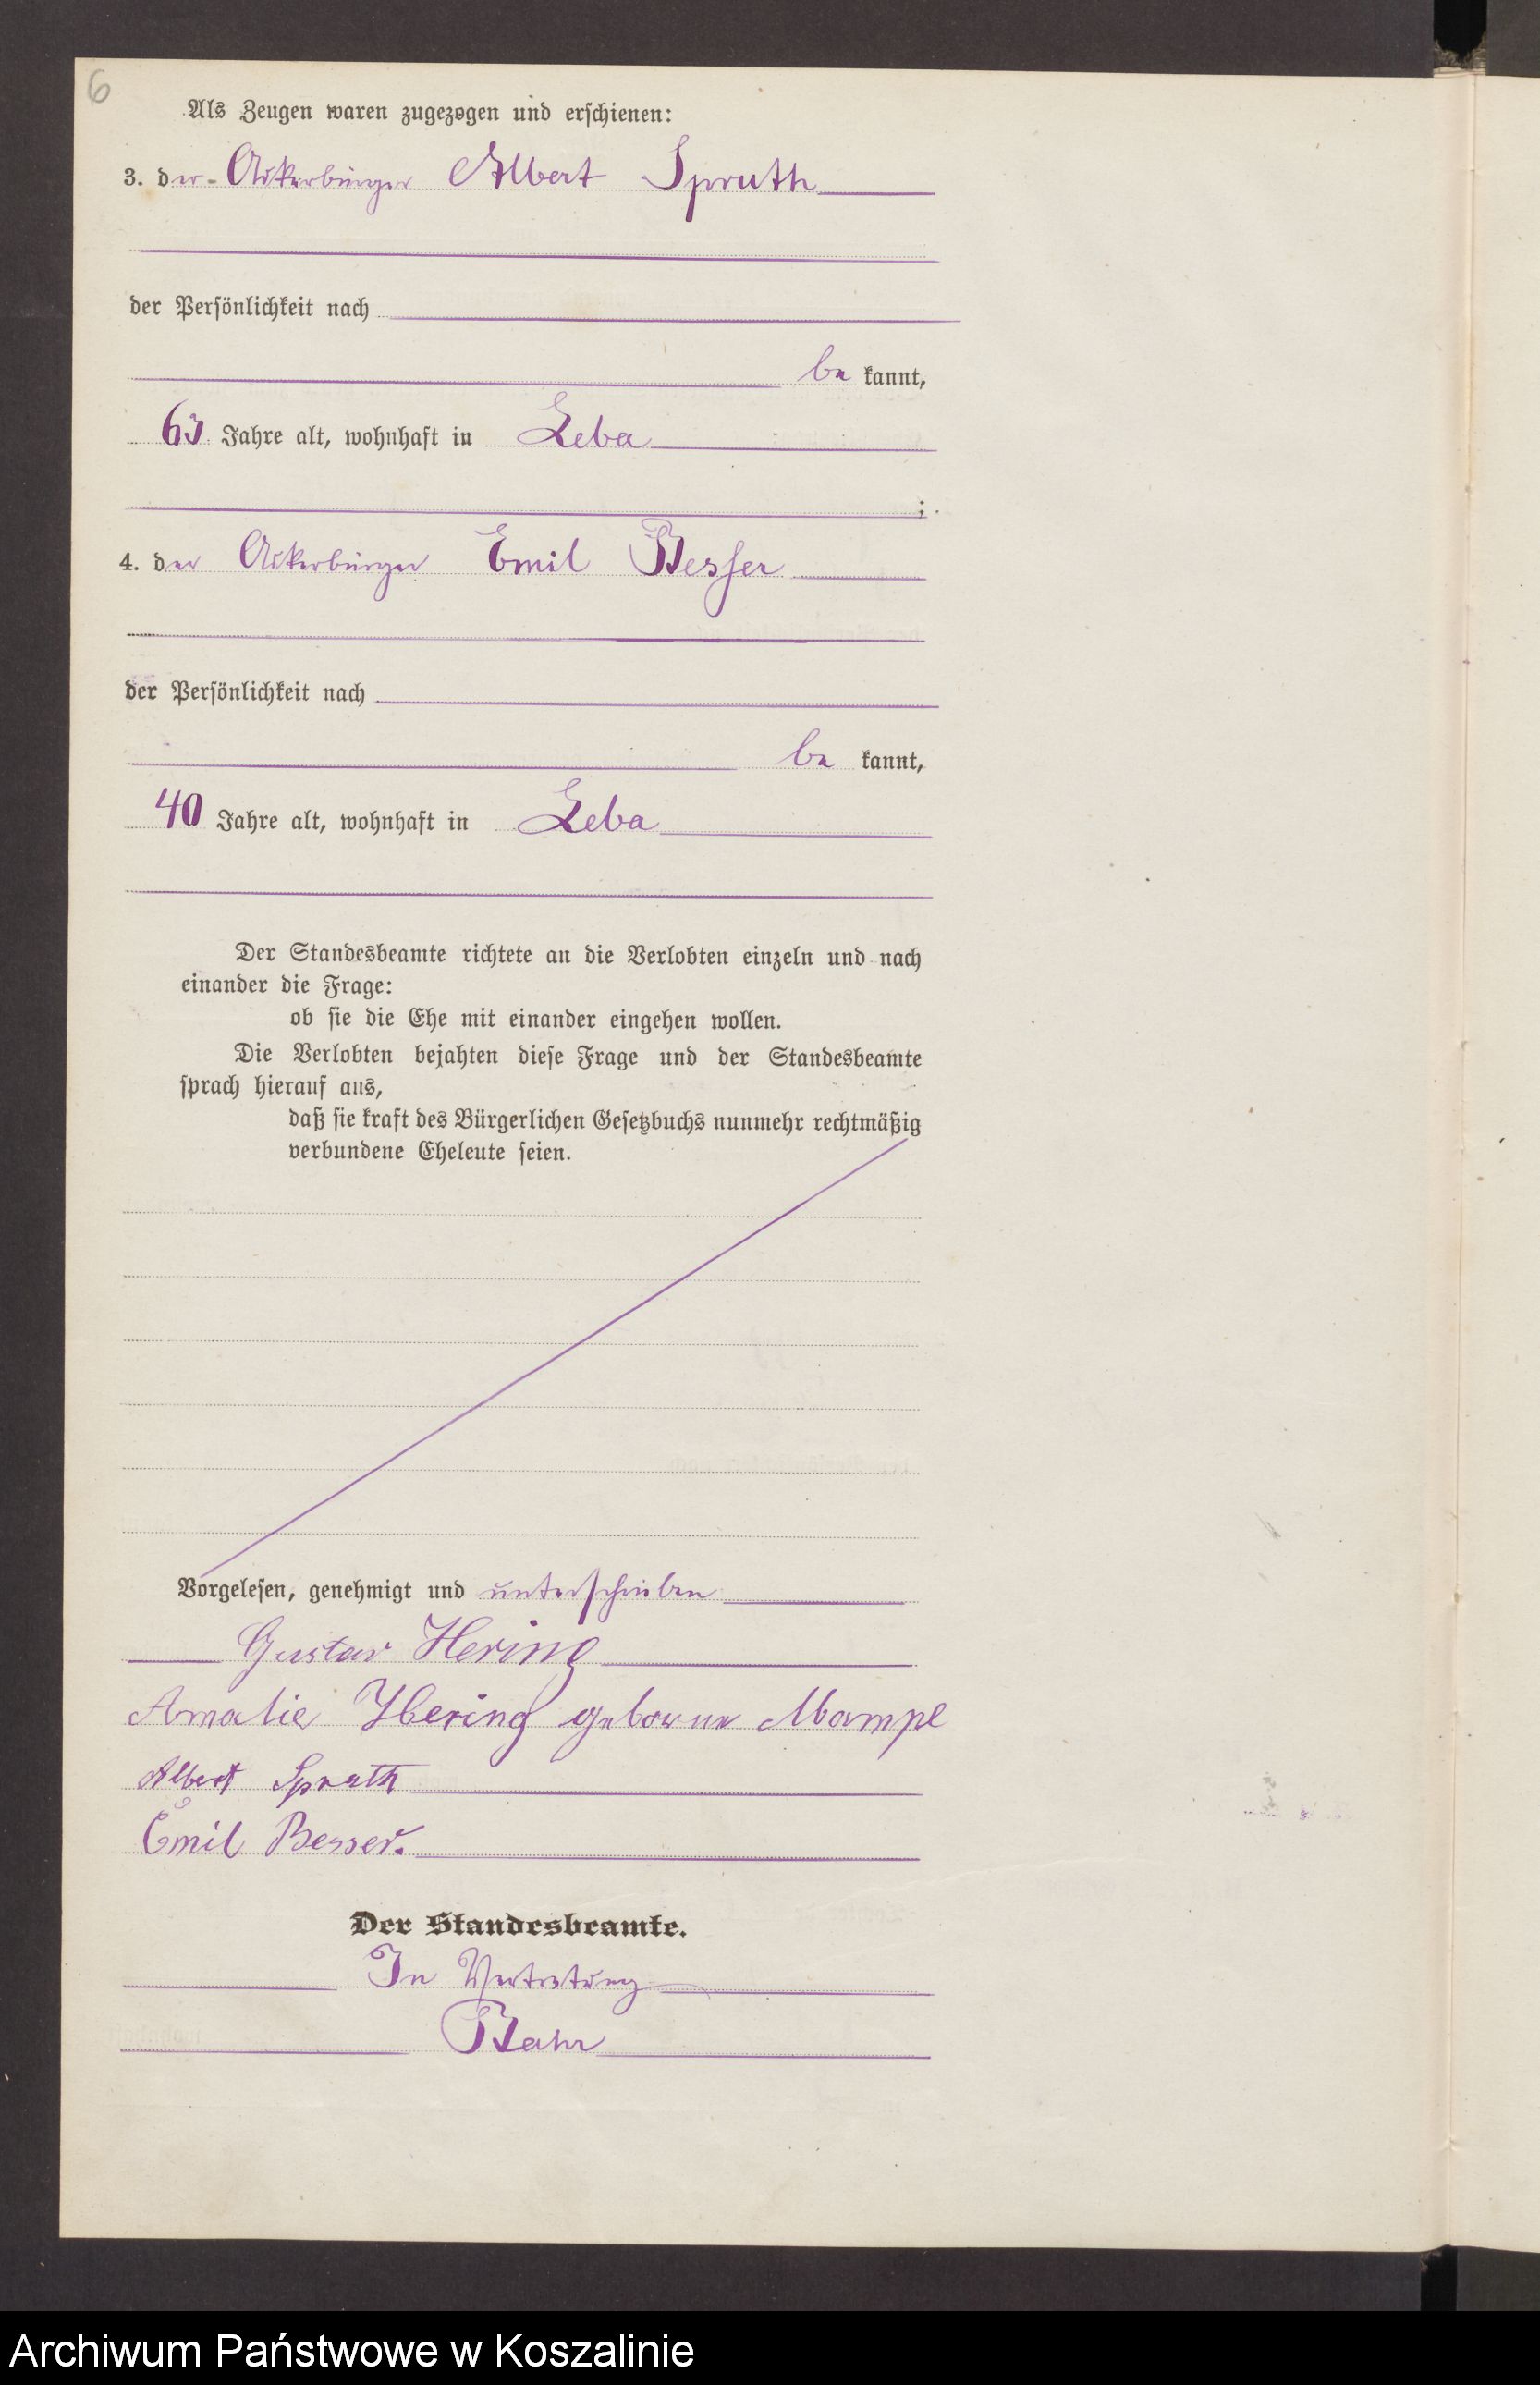 6
Als Zeugen waren zugezogen und erschienen:
3. der Ackerbürger Albert Spruth
der Persönlichkeit nach
be kannt,
Jahre alt, wohnhaft in Leba
;
4. der Ackerbürger Emil Besser
der Persönlichkeit nach
be kannt,
40 Jahre alt, wohnhaft in Leba
Der Standesbeamte richtete an die Verlobten einzeln und nach
einander die Frage:
ob sie die Ehe mit einander eingehen wollen.
Die Verlobten bejahten diese Frage und der Standesbeamte
sprach hierauf aus,
daß sie kraft des Bürgerlichen Gesetzbuchs nunmehr rechtmäßig
verbundene Eheleute seien.
Vorgelesen, genehmigt und unterschrieben
Gustav Hering
Amalie Hering geborene Mampe
Albert Spruth
Emil Besser.
Der Standesbeamte.
In Vertretung
Bahr
Archiwum Państwowe w Koszalinie